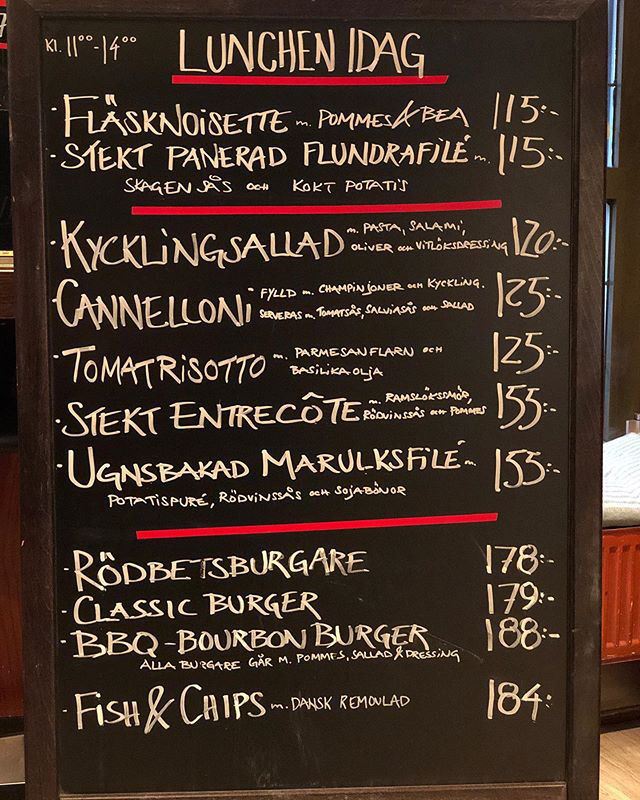 Kl. 11⁰⁰-14⁰⁰ LUNCHEN IDAG
· FLÄSKNOISETTE m. POMMES & BEA 115:-
· STEKT PANERAD FLUNDRAFILÉ m. 115:-
SKAGENSÅS och KOKT POTATIS
· KYCKLINGSALLAD m. PASTA, SALAMI, 120:-
OLIVER och VITLÖKSDRESSING
· CANNELLONI FYLLD m. CHAMPINJONER och KYCKLING. 125:-
SERVERAS m. TOMATSÅS, SALVIASÅS och SALLAD
· TOMATRISOTTO m. PARMESANFLARN och 125:-
BASILIKAOLJA
· STEKT ENTRECÔTE m. RAMSLÖKSSMÖR, 155:-
RÖDVINSSÅS och POMMES
· UGNSBAKAD MARULKSFILÉ m. 155:-
POTATISPURÉ, RÖDVINSSÅS och SOJABÖNOR
· RÖDBETSBURGARE 178:-
· CLASSIC BURGER 179:-
· BBQ-BOURBON BURGER 188:-
ALLA BURGARE GÅR M. POMMES, SALLAD & DRESSING
· FISH & CHIPS m. DANSK REMOULAD 184:-